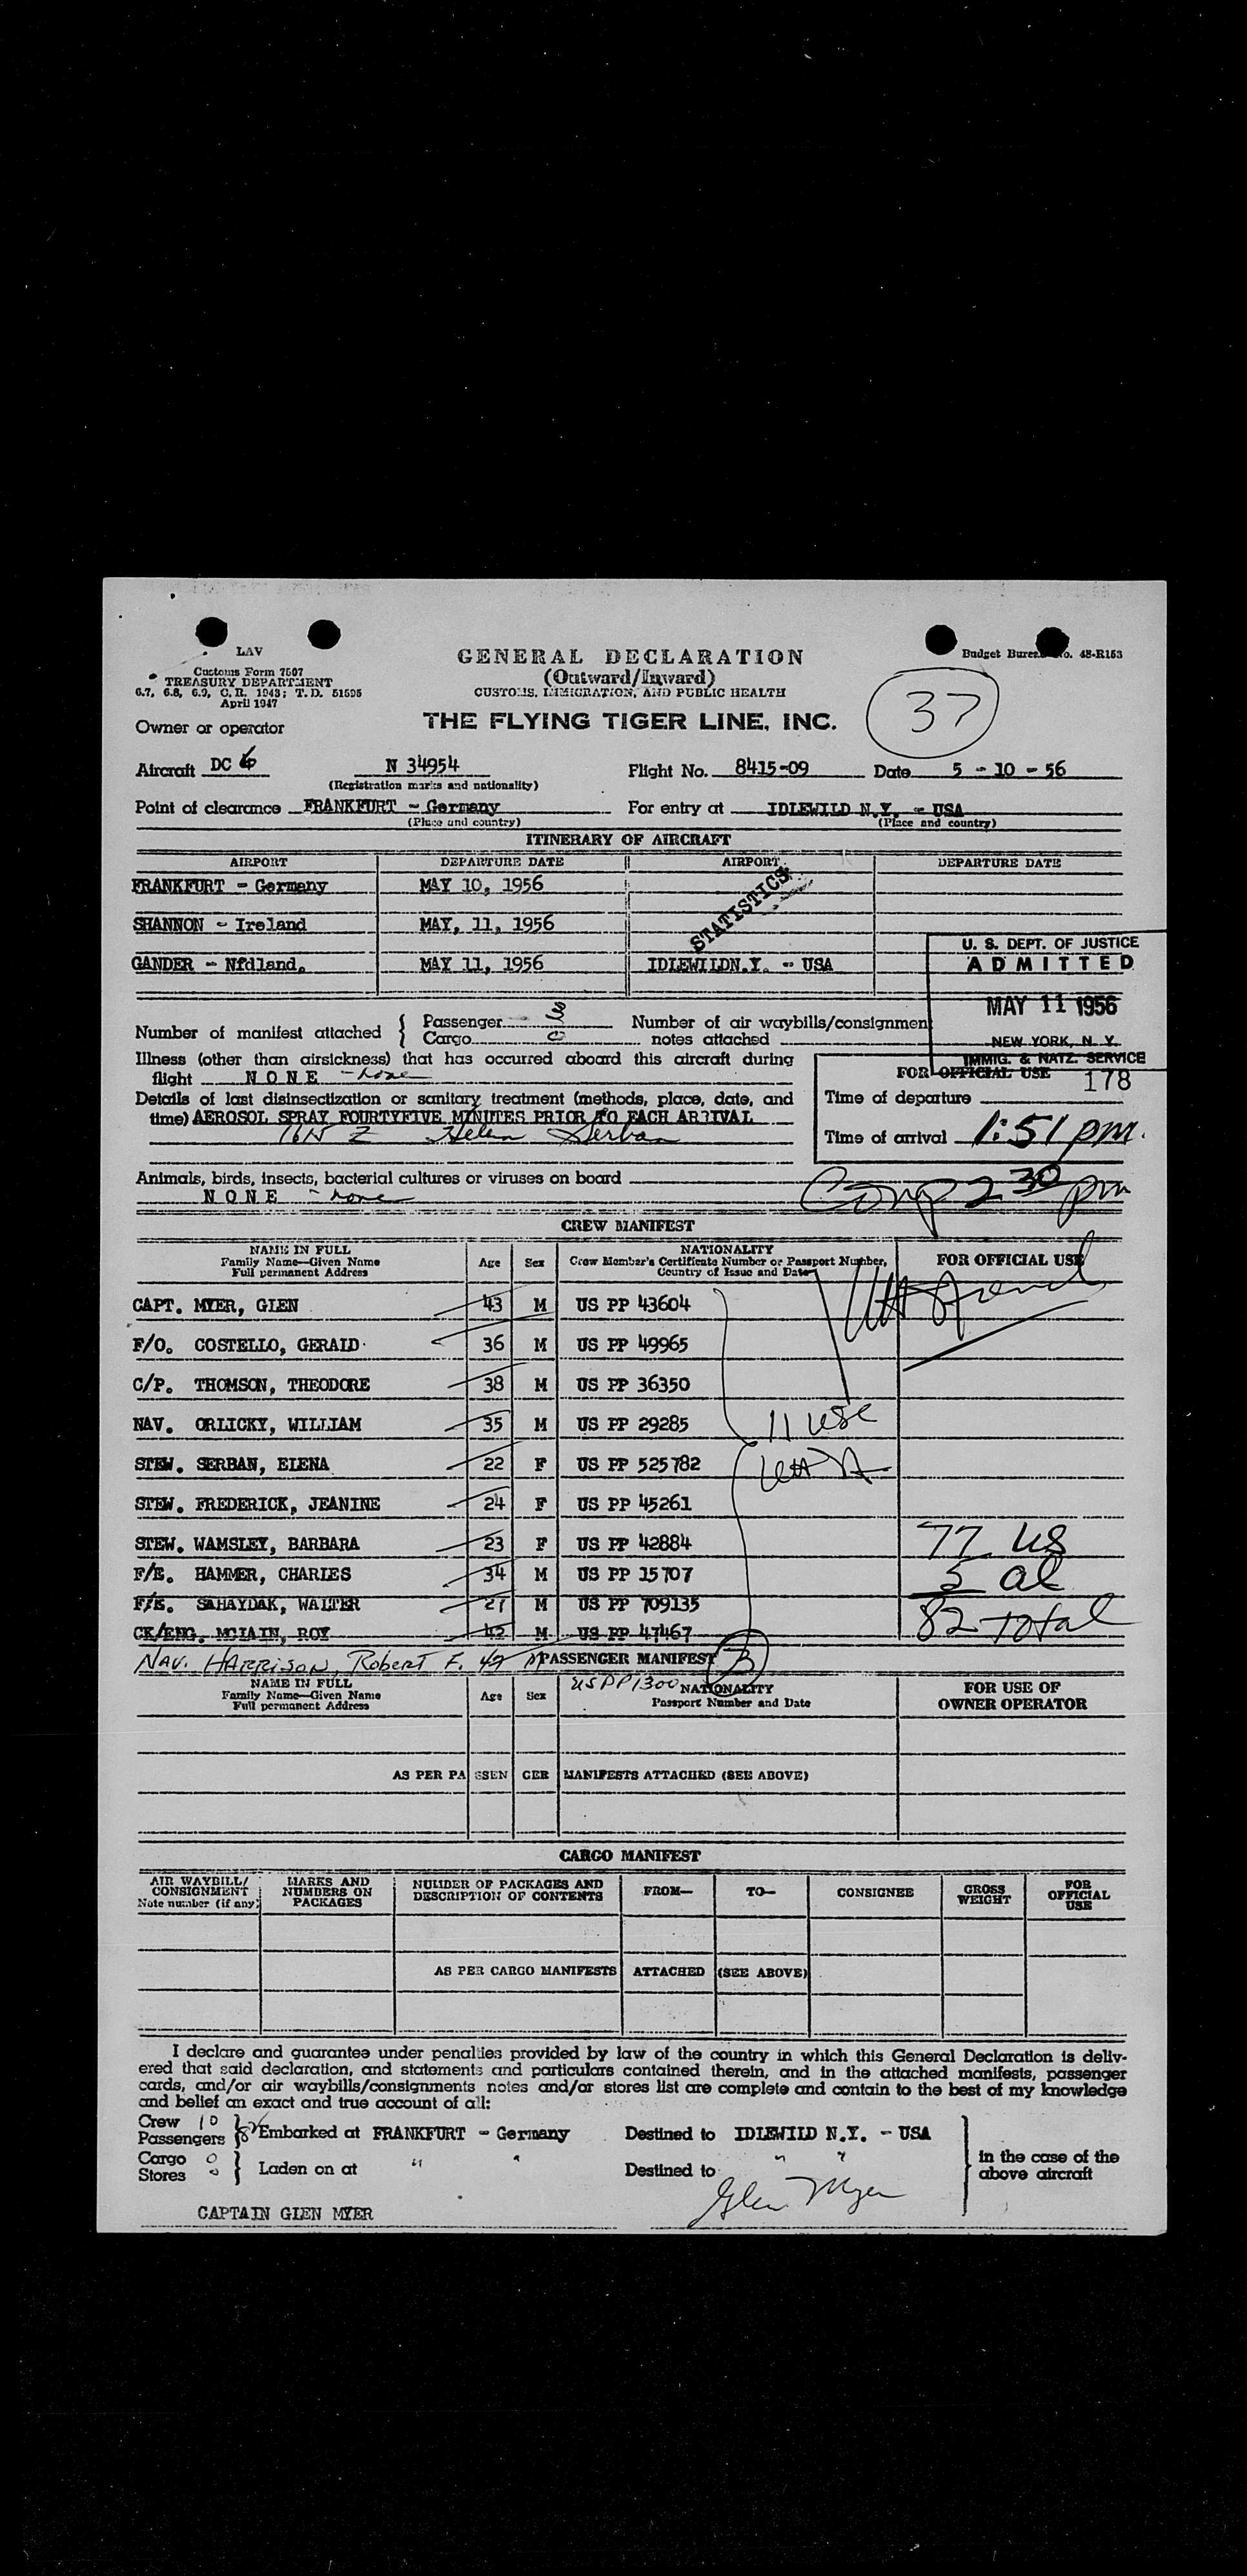 LAV
Customs Form 7507
TREASURY DEPARTMENT
6.7, 6.8, 6.9, C.R. 1943; T.D. 51595
April 1947
GENERAL DECLARATION
(Outward/Inward)
CUSTOMS, IMMIGRATION, AND PUBLIC HEALTH
Budget Bureau No. 48-R153
37
Owner or operator THE FLYING TIGER LINE, INC.
Aircraft DC 6 N 34954 Flight No. 8415-09 Date 5 - 10 - 56
(Registration marks and nationality)
Point of clearance FRANKFURT - Germany For entry at IDLEWILD N.Y. - USA
(Place and country) (Place and country)
ITINERARY OF AIRCRAFT
AIRPORT DEPARTURE DATE AIRPORT DEPARTURE DATE
FRANKFURT - Germany MAY 10, 1956
STATISTICS
SHANNON - Ireland MAY, 11, 1956
GANDER - Nfdland. MAY 11, 1956 IDLEWILDN.Y. - USA
U. S. DEPT. OF JUSTICE
ADMITTED
MAY 11 1956
NEW YORK, N. Y.
IMMIG. & NATZ. SERVICE
178
Number of manifest attached { Passenger
Cargo 0
Number of air waybills/consignment
notes attached
Illness (other than airsickness) that has occurred aboard this aircraft during
flight NONE - none
FOR OFFICIAL USE
Details of last disinsectization or sanitary treatment (methods, place, date, and
time) AEROSOL SPRAY FOURTYFIVE MINUTES PRIOR TO EACH ARTIVAL
1615 Z Helen Serban
Time of departure
Time of arrival 1:51 pm.
Animals, birds, insects, bacterial cultures or viruses on board
NONE - none
Comp 2 30 pm
CREW MANIFEST
NAME IN FULL
Family Name—Given Name
Full permanent Address
Age Sex
NATIONALITY
Crew Member's Certificate Number or Passport Number,
Country of Issue and Date
FOR OFFICIAL USE
CAPT. MYER, GLEN 43 M US PP 43604
F/O. COSTELLO, GERALD 36 M US PP 49965
C/P. THOMSON, THEODORE 38 M US PP 36350
NAV. ORLICKY, WILLIAM 35 M US PP 29285 11 usc
STEW. SERBAN, ELENA 22 F US PP 525782
STEW. FREDERICK, JEANINE 24 F US PP 45261
STEW. WAMSLEY, BARBARA 23 F US PP 42884 77 us
F/E. HAMMER, CHARLES 34 M US PP 15707 5 al
F/E. SAHAYDAK, WALTER 27 M US PP 709135 82 total
CK/ENG. MCLAIN, ROY 42 M US PP 47467
NAV. HARRISON, Robert F. 42 M US PP 1300
PASSENGER MANIFEST
NAME IN FULL
Family Name—Given Name
Full permanent Address
Age Sex
NATIONALITY
Passport Number and Date
FOR USE OF
OWNER OPERATOR
AS PER PASSENGER MANIFESTS ATTACHED (SEE ABOVE)
CARGO MANIFEST
AIR WAYBILL/
CONSIGNMENT
Note number (if any)
MARKS AND
NUMBERS ON
PACKAGES
NUMBER OF PACKAGES AND
DESCRIPTION OF CONTENTS
FROM— TO— CONSIGNEE
GROSS
WEIGHT
FOR
OFFICIAL
USE
AS PER CARGO MANIFESTS ATTACHED (SEE ABOVE)
I declare and guarantee under penalties provided by law of the country in which this General Declaration is deliv-
ered that said declaration, and statements and particulars contained therein, and in the attached manifests, passenger
cards, and/or air waybills/consignments notes and/or stores list are complete and contain to the best of my knowledge
and belief an exact and true account of all:
Crew 10
Passengers 82 } Embarked at FRANKFURT - Germany Destined to IDLEWILD N.Y. - USA
Cargo 0
Stores 0 } Laden on at " " Destined to " "
in the case of the
above aircraft
Glen Myer
CAPTAIN GLEN MYER